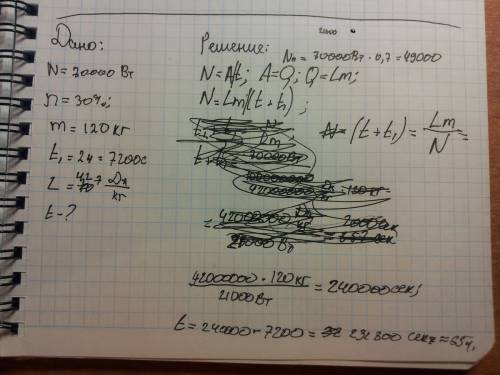 Дано:
N = 70000 Вт
n = 30%;
m = 120 кг
t₁ = 2ч = 7200с
t - ?
Решение:
Nₙ = 70000Вт · 0,7 = 49000
N = A/t; A = Q; Q = Lm;
N = Lm/(t + t₁);
(t + t₁) = Lm/N =
42000000 · 120кг / 21000Вт = 240000сек;
t = 240000 - 7200 = 232800 сек ≈ 65ч.